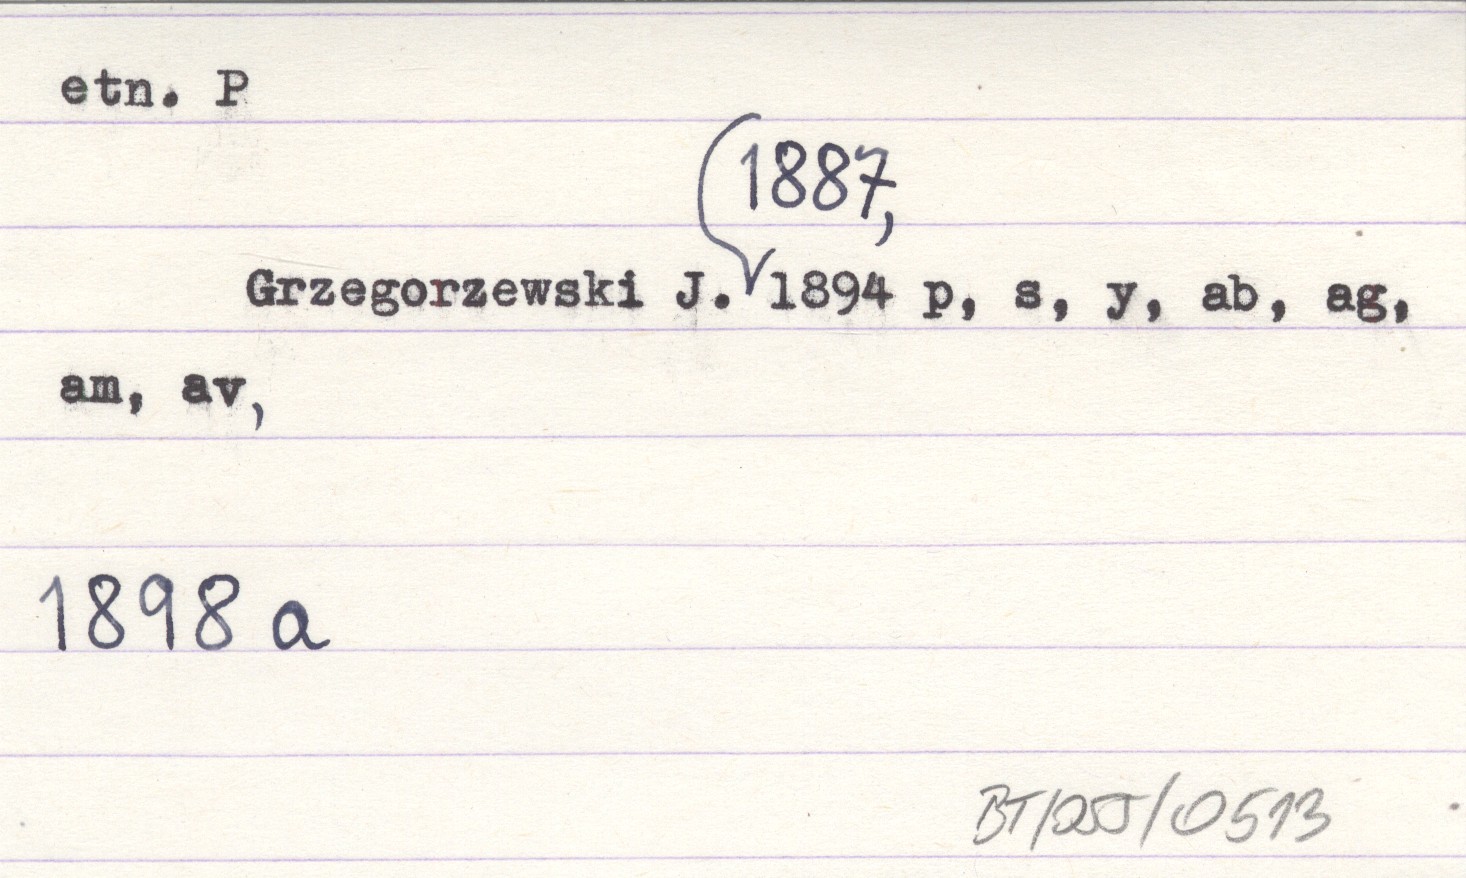 etn. P
1887,
Grzegorzewski J. 1894 p, s, y, ab, ag,
am, av,
1898 a
0513